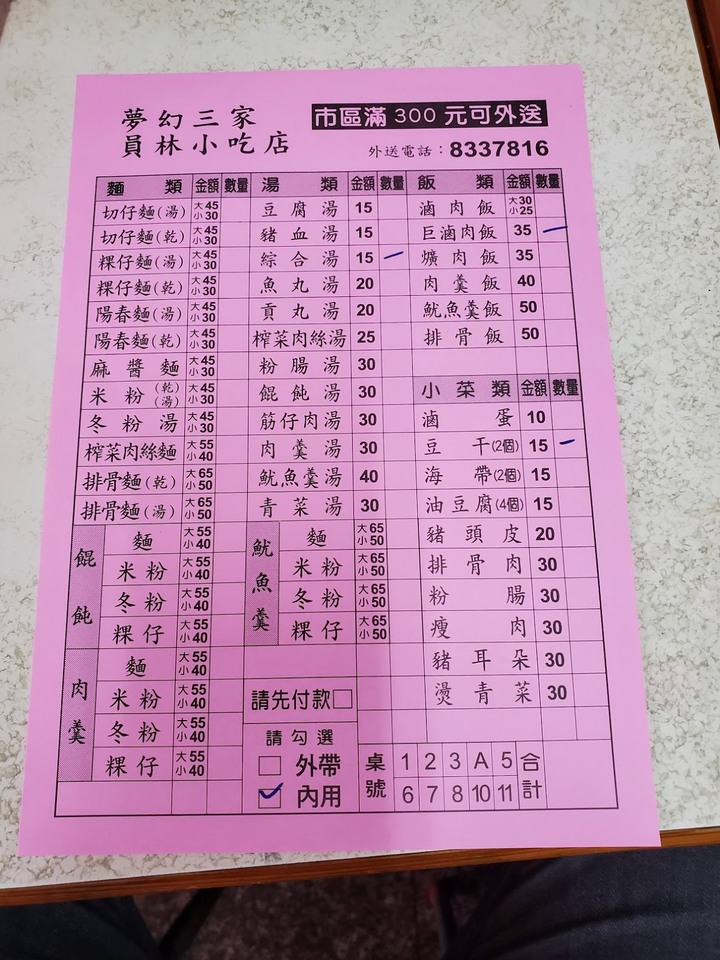 夢幻三家
員林小吃店
市區滿300元可外送
外送電話：8337816
麵類 金額 數量 湯類 金額 數量 飯類 金額 數量
切仔麵(湯) 大45 小30 豆腐湯 15 滷肉飯 大30 小25
切仔麵(乾) 大45 小30 豬血湯 15 巨滷肉飯 35
粿仔麵(湯) 大45 小30 綜合湯 15 爌肉飯 35
粿仔麵(乾) 大45 小30 魚丸湯 20 肉羹飯 40
陽春麵(湯) 大45 小30 貢丸湯 20 魷魚羹飯 50
陽春麵(乾) 大45 小30 榨菜肉絲湯 25 排骨飯 50
麻醬麵 大45 小30 粉腸湯 30
米粉(乾)(湯) 大45 小30 餛飩湯 30 小菜類 金額 數量
冬粉湯 大45 小30 筋仔肉湯 30 滷蛋 10
榨菜肉絲麵 大55 小40 肉羹湯 30 豆干(2個) 15
排骨麵(乾) 大65 小50 魷魚羹湯 40 海帶(2個) 15
排骨麵(湯) 大65 小50 青菜湯 30 油豆腐(4個) 15
餛飩 麵 大55 小40 魷魚羹 麵 大65 小50 豬頭皮 20
米粉 大55 小40 米粉 大65 小50 排骨肉 30
冬粉 大55 小40 冬粉 大65 小50 粉腸 30
粿仔 大55 小40 粿仔 大65 小50 瘦肉 30
肉羹 麵 大55 小40 豬耳朵 30
米粉 大55 小40 請先付款□ 燙青菜 30
冬粉 大55 小40 請勾選
粿仔 大55 小40 □ 外帶 桌號 1 2 3 A 5 合計
☑ 內用 6 7 8 10 11